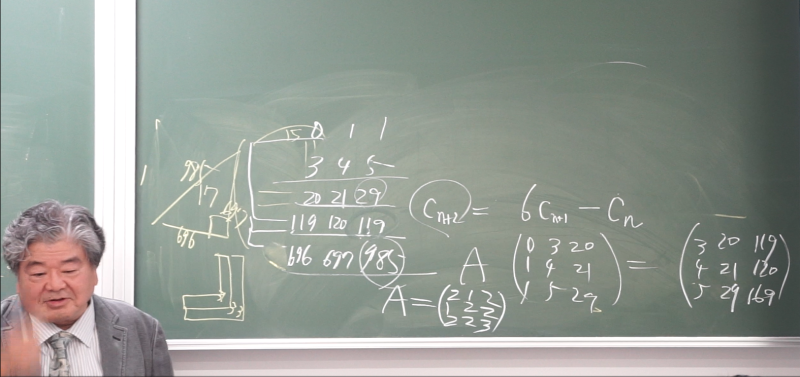 15 0 1 1
3 4 5
20 21 29
119 120 119
696 697 985
696
C_{n+2} = 6C_{n+1} - C_n
A \begin{pmatrix} 0 & 3 & 20 \\ 1 & 4 & 21 \\ 1 & 5 & 29 \end{pmatrix} = \begin{pmatrix} 3 & 20 & 119 \\ 4 & 21 & 120 \\ 5 & 29 & 169 \end{pmatrix}
A = \begin{pmatrix} 2 & 1 & 2 \\ 1 & 2 & 2 \\ 2 & 2 & 3 \end{pmatrix}